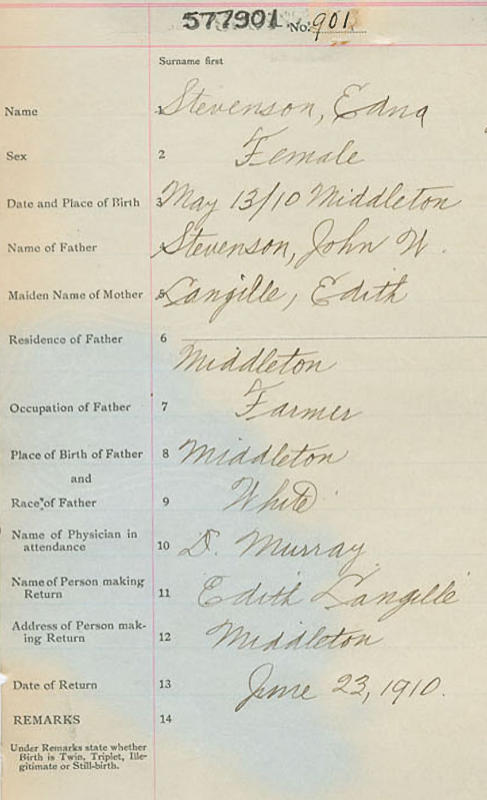 577901 No. 901
Surname first
Name 1 Stevenson, Edna
Sex 2 Female
Date and Place of Birth 3 May 13/10 Middleton
Name of Father 4 Stevenson, John W.
Maiden Name of Mother 5 Langille, Edith
Residence of Father 6
Middleton
Occupation of Father 7 Farmer
Place of Birth of Father 8 Middleton
and
Race of Father 9 White
Name of Physician in
attendance 10 D. Murray
Name of Person making
Return 11 Edith Langille
Address of Person mak-
ing Return 12 Middleton
Date of Return 13 June 23, 1910.
REMARKS 14
Under Remarks state whether
Birth is Twin, Triplet, Ille-
gitimate or Still-birth.